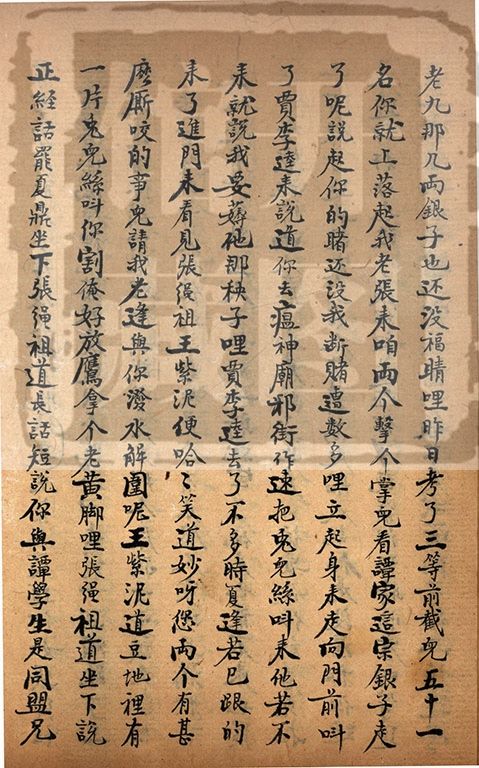 老九那几兩銀子也还没福晴哩昨日考了三等前截兒五十一
名你就上落起我老張耒咱兩个擊个掌兒看譚家這宗銀子走
了呢説起你的賭还没我断賭遭数多哩立起身耒走向門前叫
了賈李逵耒説道你去瘟神廟邪街作速把兎兒絲叫耒他若不
耒就説我要薅他那秧子哩賈李逵去了不多時夏逢若已跟的
耒了進門耒看見張繩祖王紫泥便哈〻笑道妙呀您兩个有甚
麽厮咬的事兒請我老逢與你潑水解圍呢王紫泥道豆地裡有
一片兎兒絲叫你割俺好放鷹拿个老黄脚哩張繩祖道坐下説
正經話罷夏鼎坐下張繩祖道長話短説你與譚學生是同盟兄